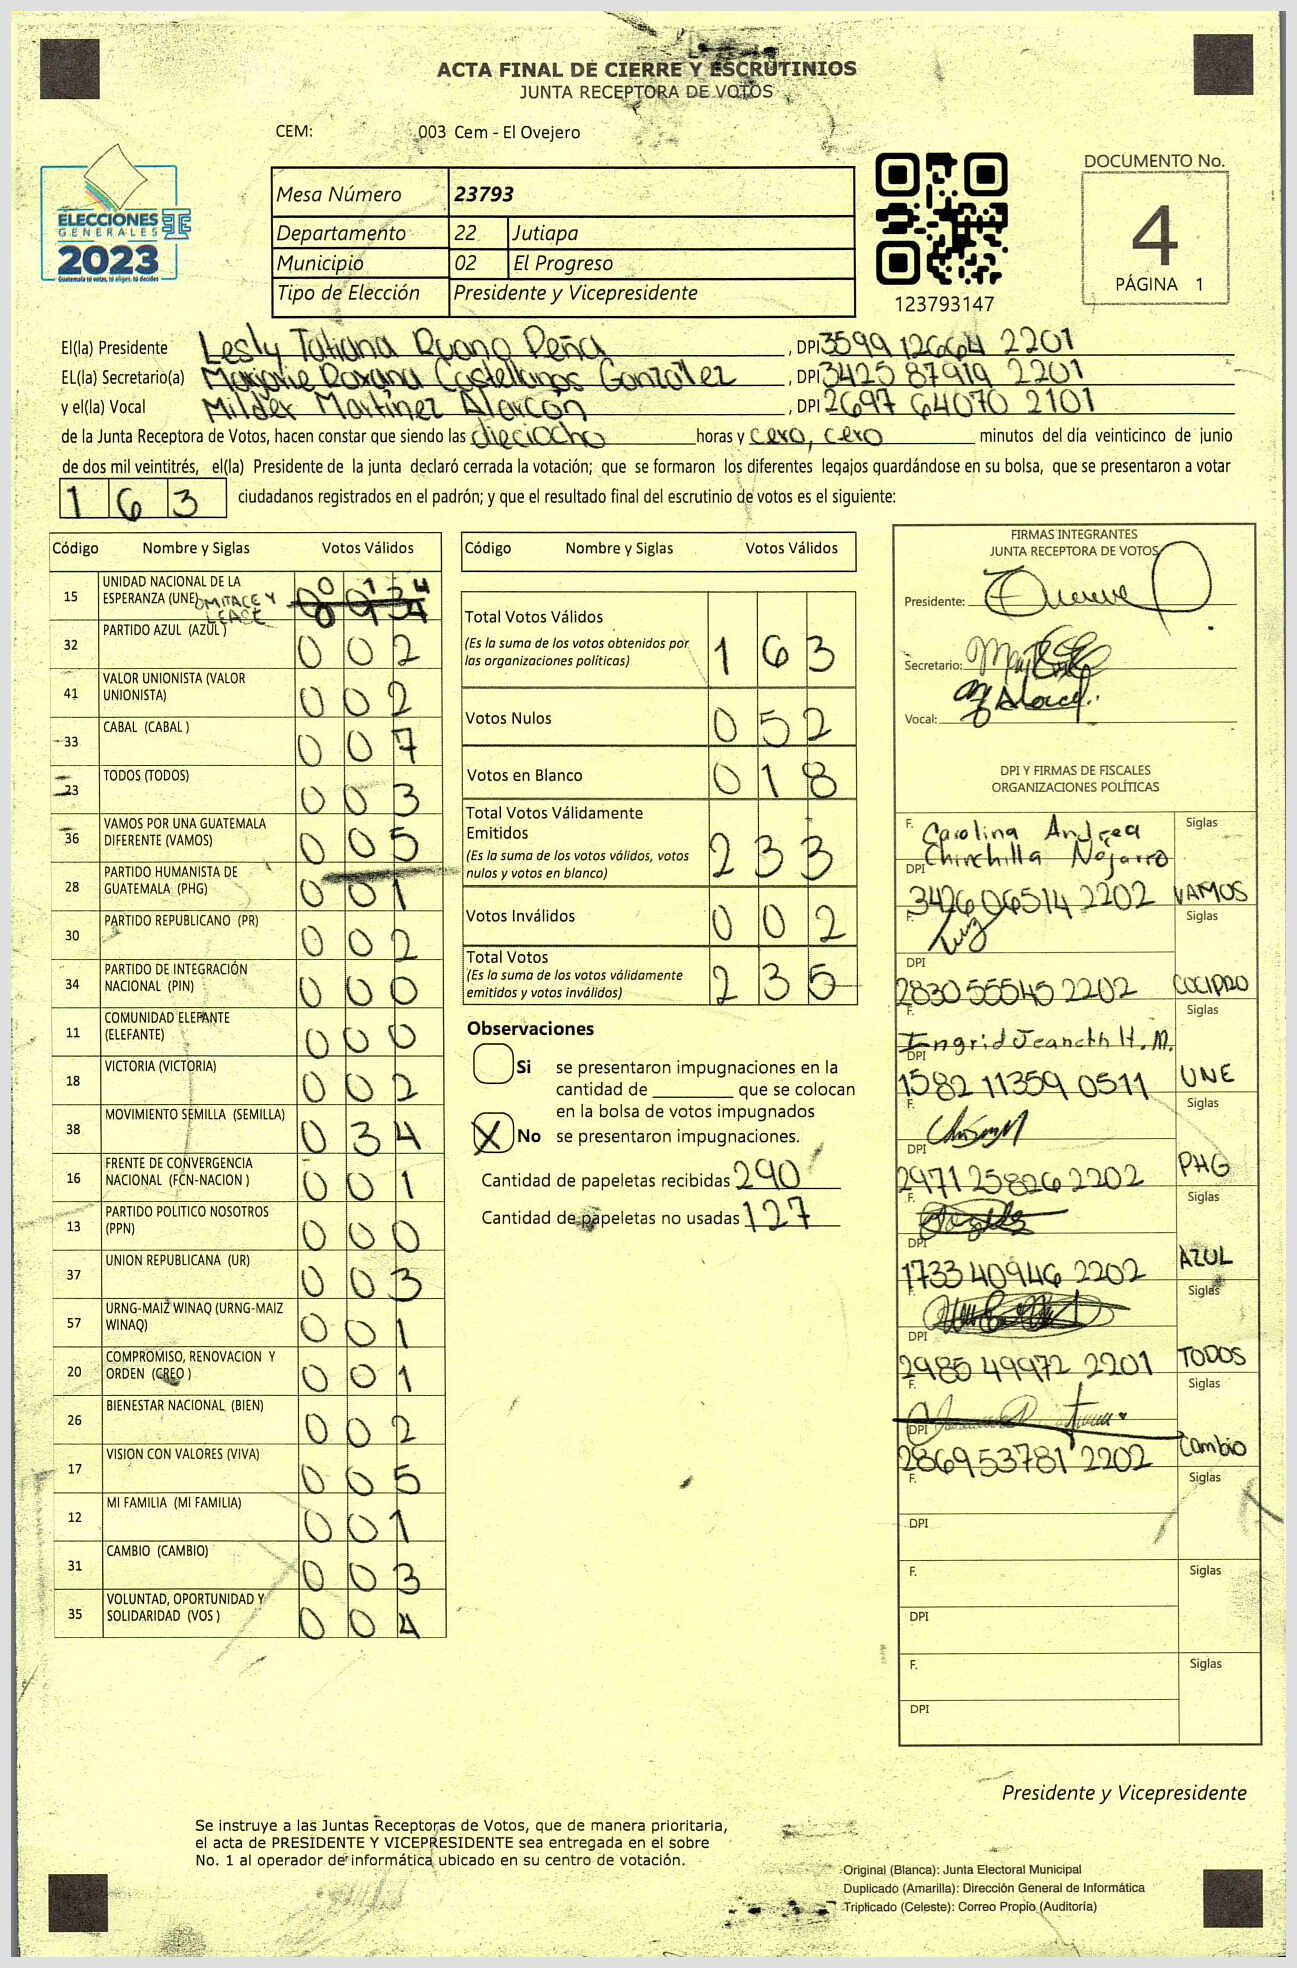 ACTA FINAL DE CIERRE Y ESCRUTINIOS
JUNTA RECEPTORA DE VOTOS
CEM: 003 Cem - El Ovejero
ELECCIONES
GENERALES
2023
Guatemala tú votas, tú eliges, tú decides
Mesa Número 23793
Departamento 22 Jutiapa
Municipio 02 El Progreso
Tipo de Elección Presidente y Vicepresidente
123793147
DOCUMENTO No.
4
PÁGINA 1
El(la) Presidente Lesly Tatiana Ruano Peña, DPI 3599 12664 2201
EL(la) Secretario(a) Marjorie Roxana Castellanos González, DPI 3425 87919 2201
y el(la) Vocal Milder Martínez Alarcón, DPI 2697 64070 2101
de la Junta Receptora de Votos, hacen constar que siendo las dieciocho horas y cero, cero minutos del día veinticinco de junio
de dos mil veintitrés, el(la) Presidente de la junta declaró cerrada la votación; que se formaron los diferentes legajos guardándose en su bolsa, que se presentaron a votar
163 ciudadanos registrados en el padrón; y que el resultado final del escrutinio de votos es el siguiente:
Código Nombre y Siglas Votos Válidos
15 UNIDAD NACIONAL DE LA ESPERANZA (UNE) OMITACE Y LEASE
32 PARTIDO AZUL (AZUL) 002
41 VALOR UNIONISTA (VALOR UNIONISTA) 002
33 CABAL (CABAL) 007
23 TODOS (TODOS) 003
36 VAMOS POR UNA GUATEMALA DIFERENTE (VAMOS) 005
28 PARTIDO HUMANISTA DE GUATEMALA (PHG) 001
30 PARTIDO REPUBLICANO (PR) 002
34 PARTIDO DE INTEGRACIÓN NACIONAL (PIN) 000
11 COMUNIDAD ELEFANTE (ELEFANTE) 000
18 VICTORIA (VICTORIA) 002
38 MOVIMIENTO SEMILLA (SEMILLA) 034
16 FRENTE DE CONVERGENCIA NACIONAL (FCN-NACION) 001
13 PARTIDO POLITICO NOSOTROS (PPN) 000
37 UNION REPUBLICANA (UR) 003
57 URNG-MAIZ WINAQ (URNG-MAIZ WINAQ) 001
20 COMPROMISO, RENOVACION Y ORDEN (CREO) 001
26 BIENESTAR NACIONAL (BIEN) 002
17 VISION CON VALORES (VIVA) 005
12 MI FAMILIA (MI FAMILIA) 001
31 CAMBIO (CAMBIO) 003
35 VOLUNTAD, OPORTUNIDAD Y SOLIDARIDAD (VOS) 004
Código Nombre y Siglas Votos Válidos
Total Votos Válidos 163
(Es la suma de los votos obtenidos por
las organizaciones políticas)
Votos Nulos 052
Votos en Blanco 018
Total Votos Válidamente
Emitidos 233
(Es la suma de los votos válidos, votos
nulos y votos en blanco)
Votos Inválidos 002
Total Votos 235
(Es la suma de los votos válidamente
emitidos y votos inválidos)
Observaciones
Si se presentaron impugnaciones en la
cantidad de ________ que se colocan
en la bolsa de votos impugnados
X No se presentaron impugnaciones.
Cantidad de papeletas recibidas 290
Cantidad de papeletas no usadas 127
FIRMAS INTEGRANTES
JUNTA RECEPTORA DE VOTOS
Presidente:
Secretario:
Vocal:
DPI Y FIRMAS DE FISCALES
ORGANIZACIONES POLÍTICAS
F. Carolina Andrea Siglas
Chinchilla Najarro
DPI 3426 06514 2202 VAMOS
F. Siglas
DPI 2830 55545 2202
F. Ingrid Jeaneth H. M. Siglas
DPI 1582 11359 0511 UNE
F. Siglas
DPI 2971 25826 2202 PHG
F. Siglas
DPI 1733 40946 2202 AZUL
F. Siglas
DPI 2985 49972 2201 TODOS
F. Siglas
DPI 2869 53781 2202 Cambio
F. Siglas
DPI
F. Siglas
DPI
F. Siglas
DPI
Presidente y Vicepresidente
Se instruye a las Juntas Receptoras de Votos, que de manera prioritaria,
el acta de PRESIDENTE Y VICEPRESIDENTE sea entregada en el sobre
No. 1 al operador de informática ubicado en su centro de votación.
Original (Blanca): Junta Electoral Municipal
Duplicado (Amarilla): Dirección General de Informática
Triplicado (Celeste): Correo Propio (Auditoría)